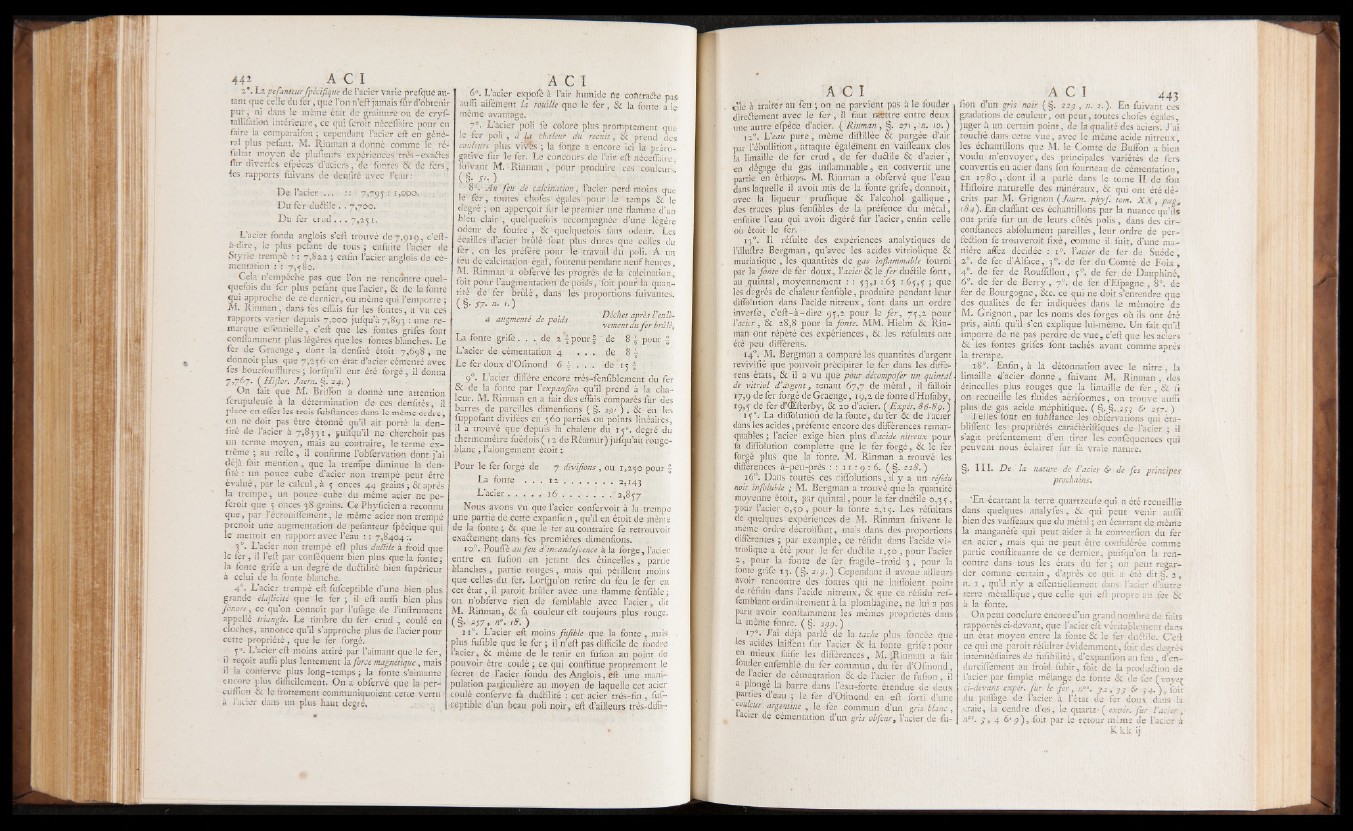 442 A C I
2°. La peſanteur ſpécifique de l'acier varie preſque au-
tant que celle du fer, que l'on n'eſt jamais ſûr d'obtenir
pur, ni dans le même état de grainure ou de cryſ-
talliſation intérieure, ce qui ſeroit néceſſaire pour en
faire la comparaiſon ; cependant l'acier eſt en géné-
ral plus peſant. M. Rinman a donné comme le ré-
ſultat moyen de pluſieurs expériences très-exactes
ſur diverſes eſpèces d'aciers, de fontes & de fers,
les rapports ſuivans de denſité avec l'eau :
De l'acier ... :: 7,795 : 1,000.
Du fer ductile . . 7,700.
Du fer crud . . . 7,251.
L'acier fondu anglois s'eſt trouvé de 7,919, c'eſt-
à-dire, le plus peſant de tous ; enſuite l'acier de
Styrie trempé :: 7,822 ; enfin l'acier anglois de cé-
mentation :: 7,580.
Cela n'empêche pas que l'on ne rencontre quel-
quefois du fer plus peſant que l'acier, & de la fonte
qui approche de ce dernier, ou même qui l'emporte ;
M. Rinman, dans ſes eſſais ſur les fontes, a vu ces
rapports varier depuis 7,000 juſqu'à 7,893 : une re-
marque eſſentielle, c'eſt que les fontes griſes ſont
conſtamment plus légères que les fontes blanches. Le
fer de Graenge, dont la denſité étoit 7,698, ne
donnoit plus que 7,256 en état d'acier cémenté avec
ſes bourſoufflures ; lorſqu'il eut été forgé, il donna
7,767. ( Hiſtor. Jaern. §. 24. )
On ſait que M. Briſſon a donné une attention
ſcrupuleuſe à la détermination de ces denſités, il
place en effet les trois ſubſtances dans le même ordre,
on ne doit pas être étonné qu'il ait porté la den-
ſité de l'acier à 7,8331, puiſqu'il ne cherchoit pas
un terme moyen, mais au contraire, le terme ex-
trême ; au reſte, il confirme l'obſervation dont j'ai
déjà fait mention, que la trempe diminue la den-
ſité : un pouce cube d'acier non trempé peut être
évalué, par le calcul, à 5 onces 44 grains ; & après
la trempe, un pouce cube du même acier ne pe-
ſeroit que 5 onces 38 grains. Ce Phyſicien a reconnu
que, par l'écrouiſſement, le même acier non trempé
prenoit une augmentation de peſanteur ſpécique qui
le mettoit en rapport avec l'eau :: 7,8404 :.
3°. L'acier non trempé eſt plus ductile à froid que
le fer, il l'eſt par conſéquent bien plus que la fonte ;
la fonte griſe a un degré de ductilité bien ſupérieur
à celui de la fonte blanche.
4°. L'acier trempé eſt ſuſceptible d'une bien plus
grande élaſticité que le fer ; il eſt auſſi bien plus
ſonore, ce qu'on connoît par l'uſage de l'inſtrument
appellé triangle. Le timbre du fer crud, coulé en
cloches, annonce qu'il s'approche plus de l'acier pour
cette propriété, que le fer forgé.
5°. L'acier eſt moins attiré par l'aimant que le fer,
il reçoit auſſi plus lentement la force magnétique, mais
il la conſerve plus long-temps ; la fonte s'aimante
encore plus difficilement. On a obſervé que la per-
cuſſion & le frottement communiquoient cette vertu
à l'acier dans un plus haut degré.
A C I
6°. L'acier expoſé à l'air humide ne contracte pas
auſſi aiſément la rouille que le fer, & la fonte a le
même avantage.
7°. L'acier poli ſe colore plus promptement que
le fer poli, à la chaleur du recuit, & prend des
couleurs plus vives ; la fonte a encore ici la préro-
gative ſur le fer. Le concours de l'air eſt néceſſaire,
ſuivant M. Rinman, pour produire ces couleurs.
( §. 51. )
8°. Au feu de calcination, l'acier perd moins que
le fer, toutes choſes égales pour le temps & le
degré ; on apperçoit ſur le premier une flamme d'un
bleu clair, quelquefois accompagnée d'une légère
odeur de ſoufre, & quelquefois ſans odeur. Les
écailles d'acier brûlé ſont plus dures que celles du
fer, on les préfère pour le travail du poli. A un
feu de calcination égal, ſoutenu pendant neuf heures,
M. Rinman a obſervé les progrès de la calcination,
ſoit pour l'augmentation de poids, ſoit pour la quan-
tité de fer brûlé, dans les proportions ſuivantes.
( §. 57. n. 1. )
a augmenté de poids Déchet après l'enlè-
vement du fer brûlé,
La fonte griſe . . . de 2 ½ pour % de 8 ½ pour %
L'acier de cémentation 4 . . . de 8 ½
Le fer doux d'Oſmond 6 ½ . . . de 15 ½
9°. L'acier diffère encore très-ſenſiblement du fer
& de la fonte par l'expanſion qu'il prend à la cha-
leur. M. Rinman en a fait des eſſais comparés ſur des
barres de pareilles dimenſions ( §. 29. ), & en les
ſuppoſant diviſées en 560 parties ou points linéaires,
il a trouvé que depuis la chaleur du 15e. degré du
thermomètre ſuédois ( 12 de Réamur ) juſqu'au rouge-
blanc, l'alongement étoit ;
Pour le fer forgé de . 7 diviſions, ou 1,250 pour %
La fonte . . . 12 . . . . . . . 2,143
L'acier . . . . . 16 . . . . . . . 2,857
Nous avons vu que l'acier conſervoit à la trempe
une partie de cette expanſion, qu'il en étoit de même
de la fonte ; & que le fer au contraire ſe retrouvoit
exactement dans ſes premières dimenſions.
10°. Pouſſé au feu d'incandeſcence à la forge, l'acier
entre en fuſion en jetant des étincelles, partie
blanches, partie rouges, mais qui pétillent moins
que celles du fer. Lorſqu'on retire du feu le fer en
cet état, il paroît brûler avec une flamme ſenſible ;
on n'obſerve rien de ſemblable avec l'acier, dit
M. Rinman, & ſa couleur eſt toujours plus rouge.
( §. 257, n°. 18. )
11°. L'acier eſt moins fuſible que la fonte, mais
plus fuſible que le fer ; il n'eſt pas difficile de fondre
l'acier, & même de le tenir en fuſion au point de
pouvoir être coulé ; ce qui conſtitue proprement le
ſecret de l'acier fondu des Anglois, eſt une mani-
pulation particulière au moyen de laquelle cet acier
coulé conſerve ſa ductilité : cet acier très-fin, ſuſ-
ceptible d'un beau poli noir, eſt d'ailleurs très-diffi-
A C I
cile à traiter au feu ; on ne parvient pas à le ſouder
directement avec le fer, il faut mettre entre deux
une autre eſpèce d'acier. ( Rinman, §. 271, n. 10. )
12°. L'eau pure, même diſtillée & purgée d'air
par l'ébullition, attaque également en vaiſſeaux clos
la limaille de fer crud, de fer ductile & d'acier,
en dégage du gas inflammable, en convertit une
partie en éthiops. M. Rinman a obſervé que l'eau
dans laquelle il avoit mis de la fonte griſe, donnoit,
avec la liqueur pruſſique & l'alcohol gallique,
des traces plus ſenſibles de la préſence du métal,
enſuite l'eau qui avoit digéré ſur l'acier, enfin celle
où étoit le fer.
13°. Il réſulte des expériences analytiques de
l'illuſtre Bergman, qu'avec les acides vitriolique &
muriatique, les quantités de gas inflammable fourni
par la fonte de fer doux, l'acier & le fer ductile ſont,
au quintal, moyennement :: 53,1 : 63 : 65,5 ; que
les degrés de chaleur ſenſible, produite pendant leur
diſſolution dans l'acide nitreux, ſont dans un ordre
inverſe, c'eſt-à-dire 95,2 pour le fer, 75,2 pour
l'acier, & 28,8 pour la fonte. MM. Hielm & Rin-
man ont répété ces expériences, & les réſultats ont
été peu différens.
14°. M. Bergman a comparé les quantités d'argent
revivifié que pouvoit précipiter le fer dans les diffé-
rens états, & il a vu que pour décompoſer un quintal
de vitriol d'argent, tenant 67,7 de métal, il falloit
17,9 de fer forgé de Graenge, 19,2 de fonte d'Huſaby,
19,5 de fer d'Œſterby, & 20 d'acier. ( Expér. 86-89. )
15°. La diſſolution de la fonte, du fer & de l'acier
dans les acides, préſente encore des différences remar-
quables ; l'acier exige bien plus d'acide nitreux pour
ſa diſſolution complette que le fer forgé, & le fer
forgé plus que la fonte. M. Rinman a trouvé les
différences à-peu-près :: 11 : 9 : 6. ( §. 228. )
16°. Dans toutes ces diſſolutions, il y a un réſidu
noir inſoluble ; M. Bergman a trouvé que la quantité
moyenne étoit, par quintal, pour le fer ductile 0,35,
pour l'acier 0,50, pour la fonte 2,15. Les réſultats
de quelques expériences de M. Rinman ſuivent le
même ordre décroiſſant, mais dans des proportions
différences ; par exemple, ce réſidu dans l'acide vi-
triolique a été pour le fer ductile 1,50, pour l'acier
2, pour la fonte de fer fragile-froid 3, pour la
fonte griſe 13. ( §. 219. ) Cependant il avoue ailleurs
avoir rencontre des fontes qui ne laiſſoient point
de réſidu dans l'acide nitreux, & que ce réſidu reſ-
ſemblant ordinairement à la plombagine, ne lui a pas
paru avoir conſtamment les mêmes propriétés dans
la même fonte. ( §. 299. )
17°. J'ai déjà parlé de la tache plus foncée que
les acides laiſſent ſur l'acier & la fonte griſe : pour
en mieux ſaiſir les différences, M. Rinman a fait
ſouder enſemble du fer commun, du fer d'Oſmond,
de l'acier de cémentation & de l'acier de fuſion, il
a plongé la barre dans l'eau-forte étendue de deux
parties d'eau ; le fer d'Oſmond en eſt ſorti d'une
couleur argentine, le fer commun d'un gris blanc,
l'acier de cémentation d'un gris obſcur, l'acier de fu-
A C I 443
ſion d'un gris noir ( §. 229, n. 2. ). En ſuivant ces
gradations de couleur, on peut, toutes choſes égales,
juger à un certain point, de la qualité des aciers. J'ai
touché dans cette vue, avec le même acide nitreux,
les échantillons que M. le Comte de Buffon a bien
voulu m'envoyer, des principales variétés de fers
convertis en acier dans ſon fourneau de cémentation,
en 1780, dont il a parlé dans le tome II de ſon
Hiſtoire naturelle des minéraux, & qui ont été dé-
crits par M. Grignon ( Journ. phyſ. tom. XX, pag.
184 ). En claſſant ces échantillons par la nuance qu'ils
ont priſe ſur un de leurs côtés polis, dans des cir-
conſtances abſolument pareilles, leur ordre de per-
fection ſe trouveroit fixé, comme il ſuit, d'une ma-
nière aſſez décidée : 1°. l'acier de fer de Suède,
2°. de fer d'Alſace, 3°. de fer du Comté de Foix,
4°. de fer de Rouſſillon, 5°. de fer de Dauphiné,
6°. de fer de Berry, 7°. de fer d'Eſpagne, 8°. de
fer de Bourgogne, &c. ce qui ne doit s'entendre que
des qualités de fer indiquées dans le mémoire de
M. Grignon, par les noms des forges où ils ont été
pris, ainſi qu'il s'en explique lui-même. Un fait qu'il
importe de ne pas perdre de vue, c'eſt que les aciers
& les fontes griſes ſont tachés avant comme après
la trempe.
18°. Enfin, à la détonnation avec le nitre, la
limaille d'acier donne, ſuivant M. Rinman, des
étincelles plus rouges que la limaille de fer, & ſi
on recueille les fluides aériformes, on trouve auſſi
plus de gas acide méphitique. ( §. §. 253 & 257. )
Telles ſont en ſubſtance les obſervations qui éta-
bliſſent les propriétés caractériſtiques de l'acier ; il
s'agit préſentement d'en tirer les conſéquences qui
peuvent nous éclairer ſur ſa vraie nature.
§. III. De la nature de l'acier & de ſes principes
prochains.
En écartant la terre quartzeuſe qui a été recueillie
dans quelques analyſes, & qui peut venir auſſi
bien des vaiſſeaux que du métal ; en écartant de même
la manganèſe qui peut aider à la converſion du fer
en acier, mais qui ne peut être conſidérée comme
partie conſtituante de ce dernier, puiſqu'on la ren-
contre dans tous les états du fer ; on peut regar-
der comme certain, d'après ce qui a été dit §. 2,
n. 1, qu'il n'y a eſſentiellement dans l'acier d'autre
terre métallique, que celle qui eſt propre au fer &
à la fonte.
On peut conclure encore d'un grand nombre de faits
rapportés ci-devant, que l'acier eſt véritablement dans
un état moyen entre la fonte & le fer ductile. C'eſt
ce qui me paroît réſulter évidemment, ſoit des degrés
intermédiaires de fuſibilité, d'expanſion au feu, d'en-
durciſſement au froid ſubit, ſoit de la production de
l'acier par ſimple mélange de fonte & de fer ( voyez
ci-devant expér. ſur le fer, nos. 32, 33 & 34. ), ſoit
du paſſage de l'acier à l'état de fer doux dans la
craie, la cendre d'os, le quartz ( expér. ſur l'acier,
nos. 3, 4 & 9 ), ſoit par le retour même de l'acier à
K k k ij